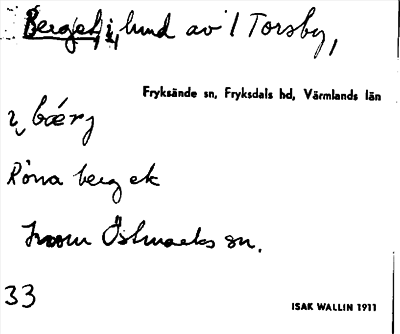 Berget, i, lund av 1 Torsby,
Fryksände sn, Fryksdals hd, Värmlands län
i bærj
Röna berg ek
Inom Östmarks sn.
33
ISAK WALLIN 1911